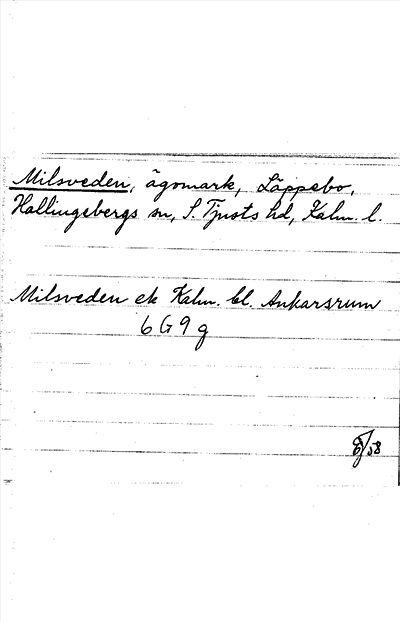 Milsveden, ägomark, Läppebo,
Hallingebergs sn, S. Tjusts hd, Kalm. l.
Milsveden ek Kalm. bl. Ankarsrum
6 G 9 g
58